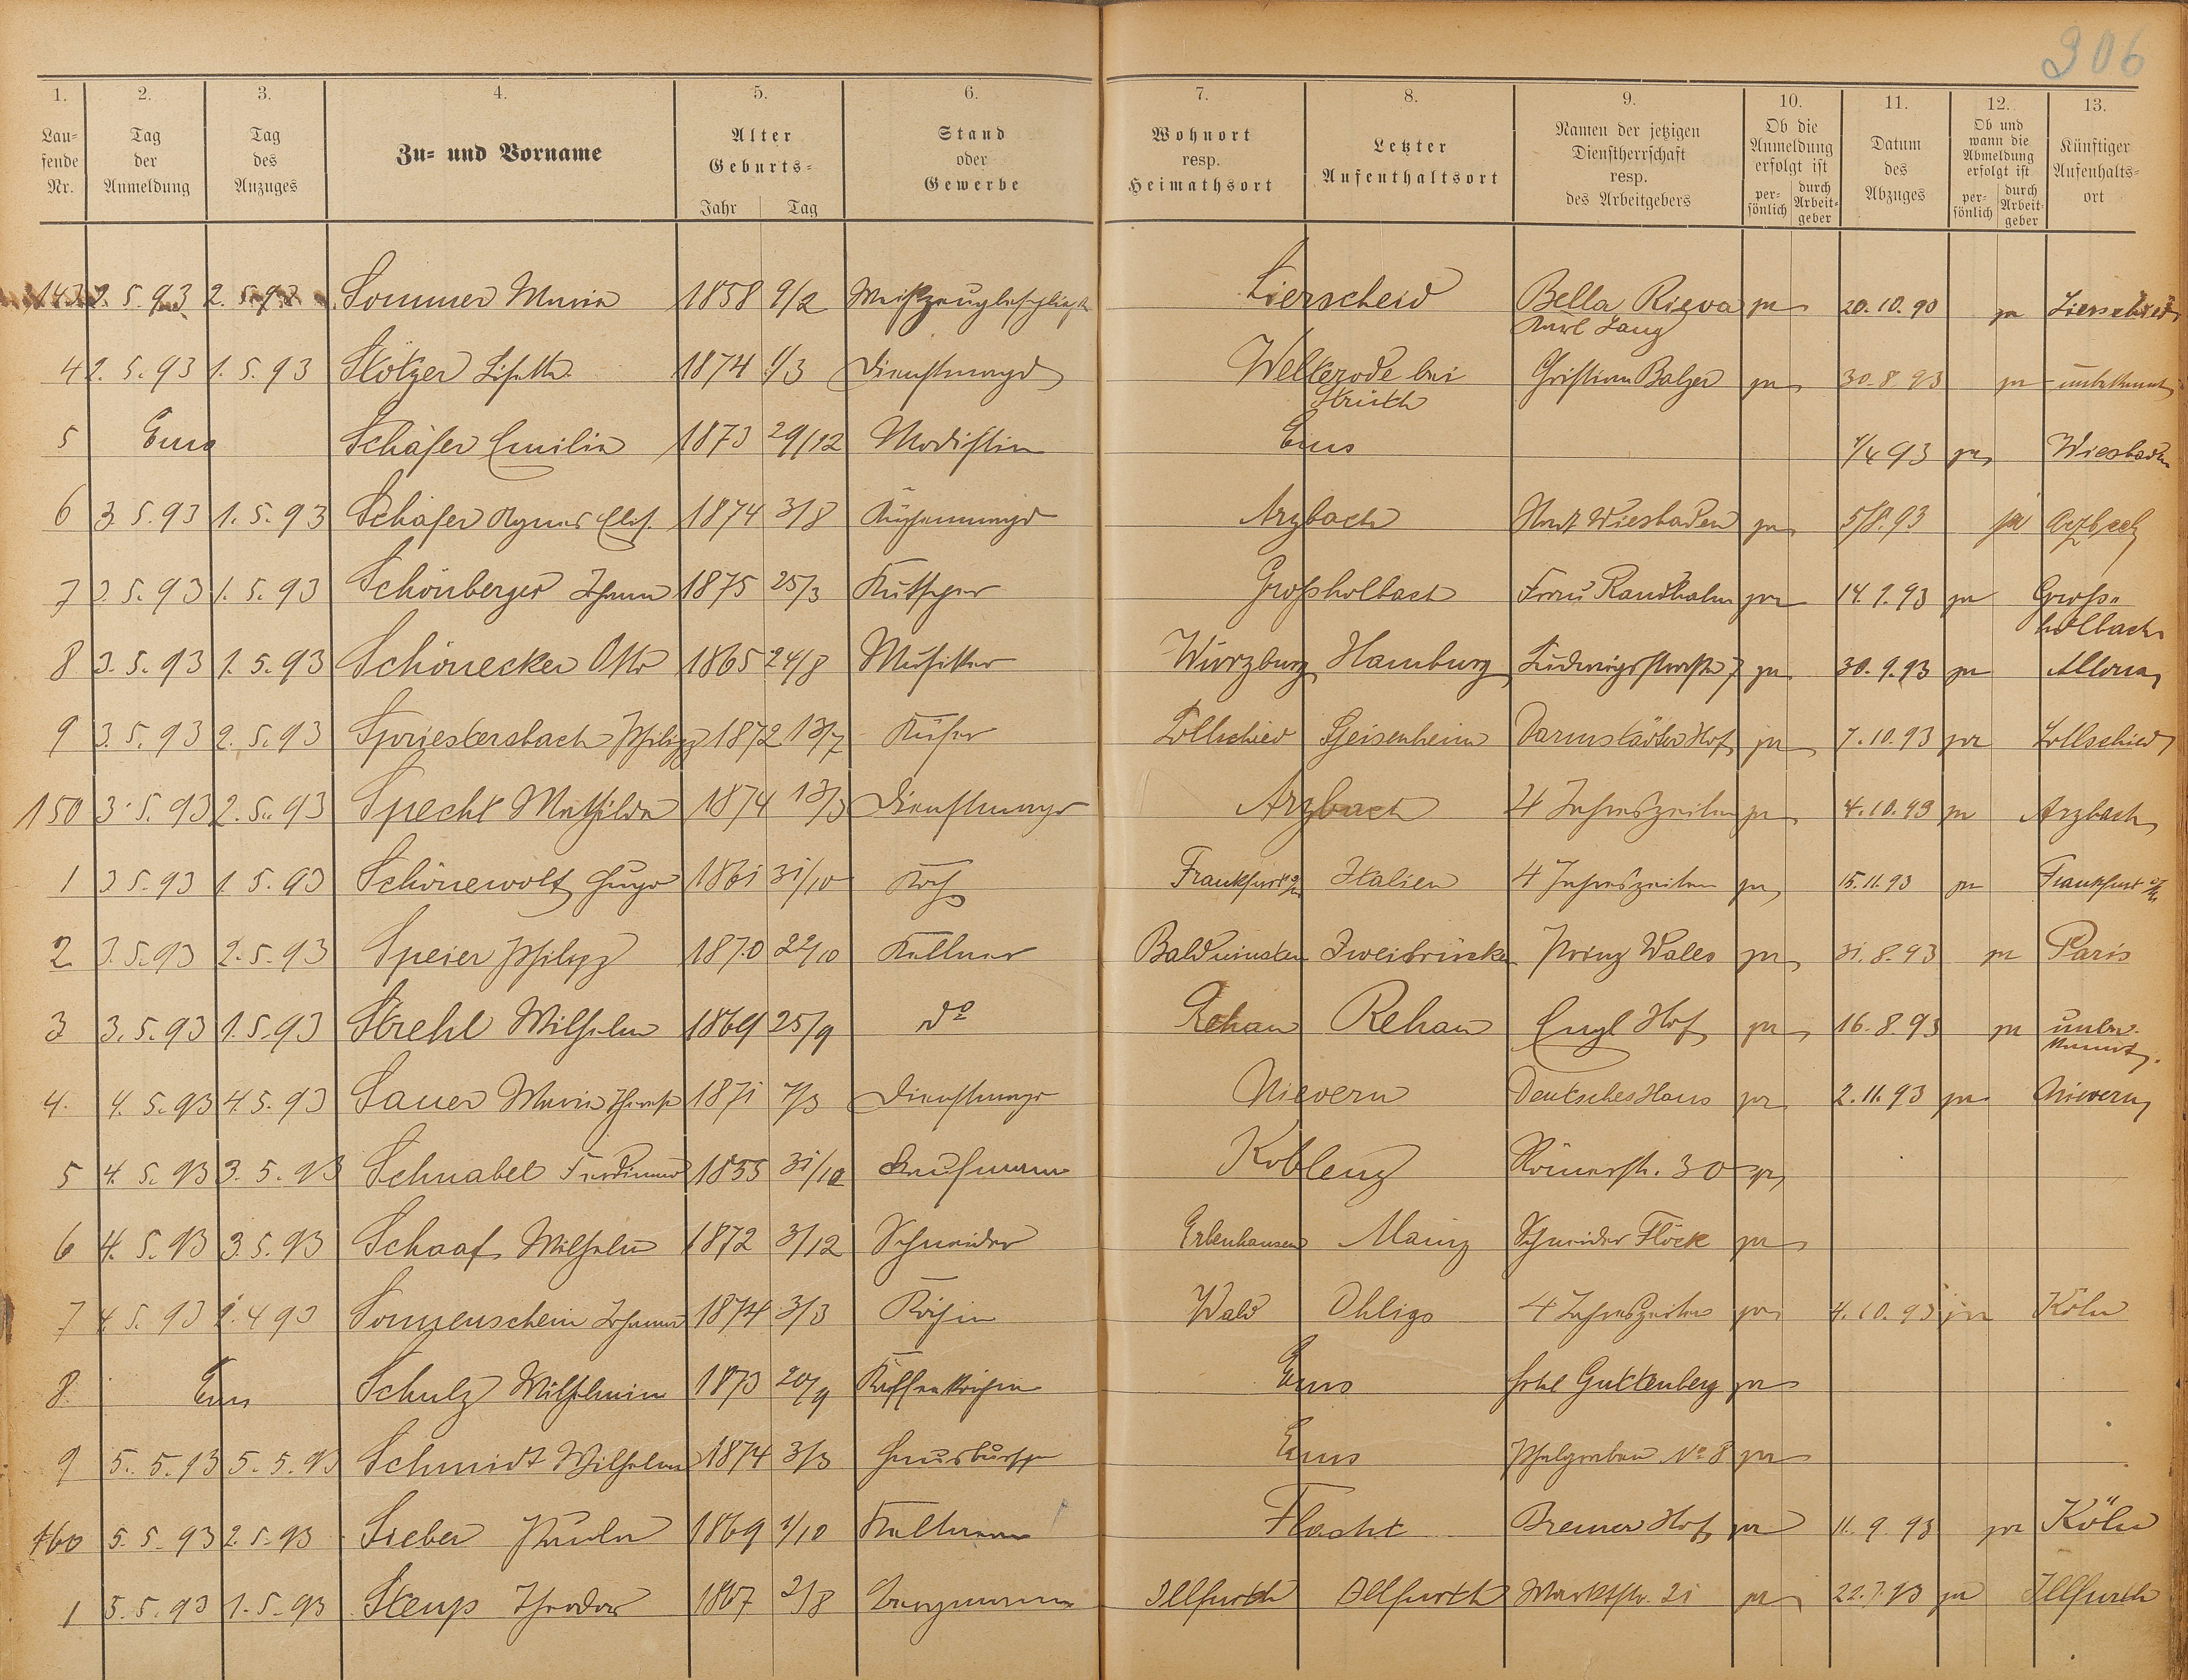 306
1. 2. 3. 4. 5. 6. 7. 8. 9. 10. 11. 12. 13.
Laufende Nr. Tag der Anmeldung Tag des Anzuges Zu- und Vorname Alter Geburts- Jahr Tag Stand oder Gewerbe Wohnort resp. Heimathsort Letzter Aufenthaltsort Namen der jetzigen Dienstherrschaft resp. des Arbeitgebers Ob die Anmeldung erfolgt ist persönlich durch Arbeitgeber Datum des Abzuges Ob und wann die Abmeldung erfolgt ist persönlich durch Arbeitgeber Künftiger Aufenthaltsort
143 2. 5. 93 2. 5. 93 Sommer Maria 1858 9/2 Lierscheid Bella Rieva ja 20. 10. 90 ja Lierscheid
Karl Lang
4 2. 5. 93 1. 5. 93 Stötzer Lisette 1874 1/3 Dienstmagd Welterode bei Christian Balzer ja 30. 8. 93 ja unbekannt
Strüth
5 Ems Schäfer Emilie 1873 29/12 Modistin Ems 1/4 93 ja Wiesbaden
6 3. 5. 93 1. 5. 93 Schäfer Agnes Elis. 1874 3/8 Küchenmagd Arzbach Stadt Wiesbaden ja 5/8. 93 ja Arzbach
7 3. 5. 93 1. 5. 93 Schönberger Johann 1875 25/3 Kutscher Großholbach Frau Randhahn ja 14. 9. 93 ja Groß-
holbach
8 3. 5. 93 1. 5. 93 Schönecker Otto 1865 24/8 Musiker Würzburg Hamburg Ludwigstraße 7 ja 30. 9. 93 ja Altona
9 3. 5. 93 2. 5. 93 Spriestersbach Philipp 1872 13/7 Küfer Lollschied Geisenheim Darmstädter Hof ja 7. 10. 93 ja Lollschied
150 3. 5. 93 2. 5. 93 Specht Mathilde 1874 13/3 Dienstmagd Arzbach 4 Jahreszeiten ja 4. 10. 93 ja Arzbach
1 3. 5. 93 1. 5. 93 Schönewolf Hugo 1861 31/10 Koch Frankfurt a/M Italien 4 Jahreszeiten ja 15. 11. 93 ja Frankfurt a/M
2 3. 5. 93 2. 5. 93 Speier Philipp 1870 22/10 Kellner Balduinstein Zweibrücken Prinz Wales ja 31. 8. 93 ja Paris
3 3. 5. 93 1. 5. 93 Strehl Wilhelm 1869 25/9 do Rehau Rehau Engl Hof ja 16. 8. 93 ja unbe-
kannt.
4. 4. 5. 93 4. 5. 93 Sauer Maria Theresia 1871 7/3 Dienstmagd Nievern Deutsches Haus ja 2. 11. 93 ja Nievern
5 4. 5. 93 3. 5. 93 Schnabel Ferdinand 1855 31/10 Kaufmann Koblenz Römerstr. 30 ja
6 4. 5. 93 3. 5. 93 Schaaf Wilhelm 1872 3/12 Schneider Erbenhausen Mainz Schneider Flöck ja
7 4. 5. 93 1. 4 93 Sonnenschein Johanna 1874 3/3 Köchin Wald Ohligs 4 Jahreszeiten ja 4. 10. 93 ja Köln
8. Ems Schulz Wilhelmine 1873 20/9 Kaffeeköchin Ems Hotel Guttenberg ja
9 5. 5. 93 5. 5. 93 Schmidt Wilhelm 1874 3/3 Hausbursche Ems Pfahlgraben No 8 ja
160 5. 5. 93 2. 5. 93 Sieber Paula 1869 1/10 Flacht Bremer Hof ja 11. 9. 93 ja Köln
1 5. 5. 93 1. 5. 93 Steup Theodor 1867 2/8 Bergmann Illfurth Illfurth Marktstr. 21 ja 22. 7. 93 ja Illfurth